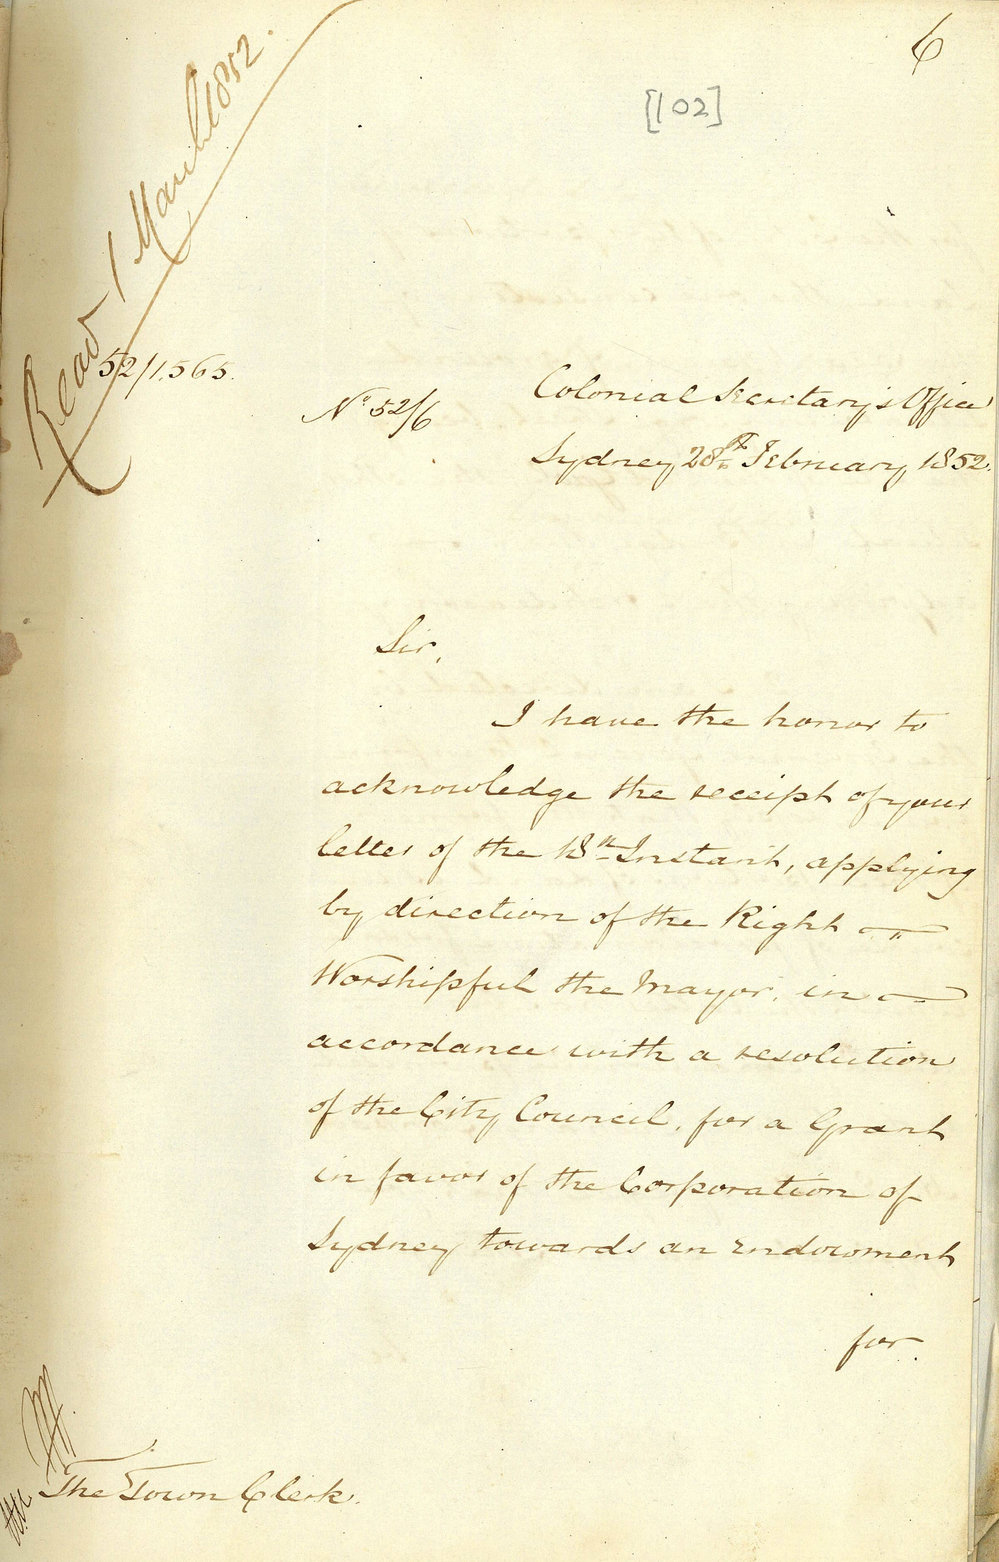 6
[102]
Read 1 March 1852.
52/1,565.
No 52/6
Colonial Secretary's Office
Sydney 28th February 1852.
Sir,
I have the honor to
acknowledge the receipt of your
letter of the 18th Instant, applying
by direction of the Right
Worshipful the Mayor, in
accordance with a resolution
of the City Council, for a Grant
in favor of the Corporation of
Sydney towards an Endowment
for
The Town Clerk.